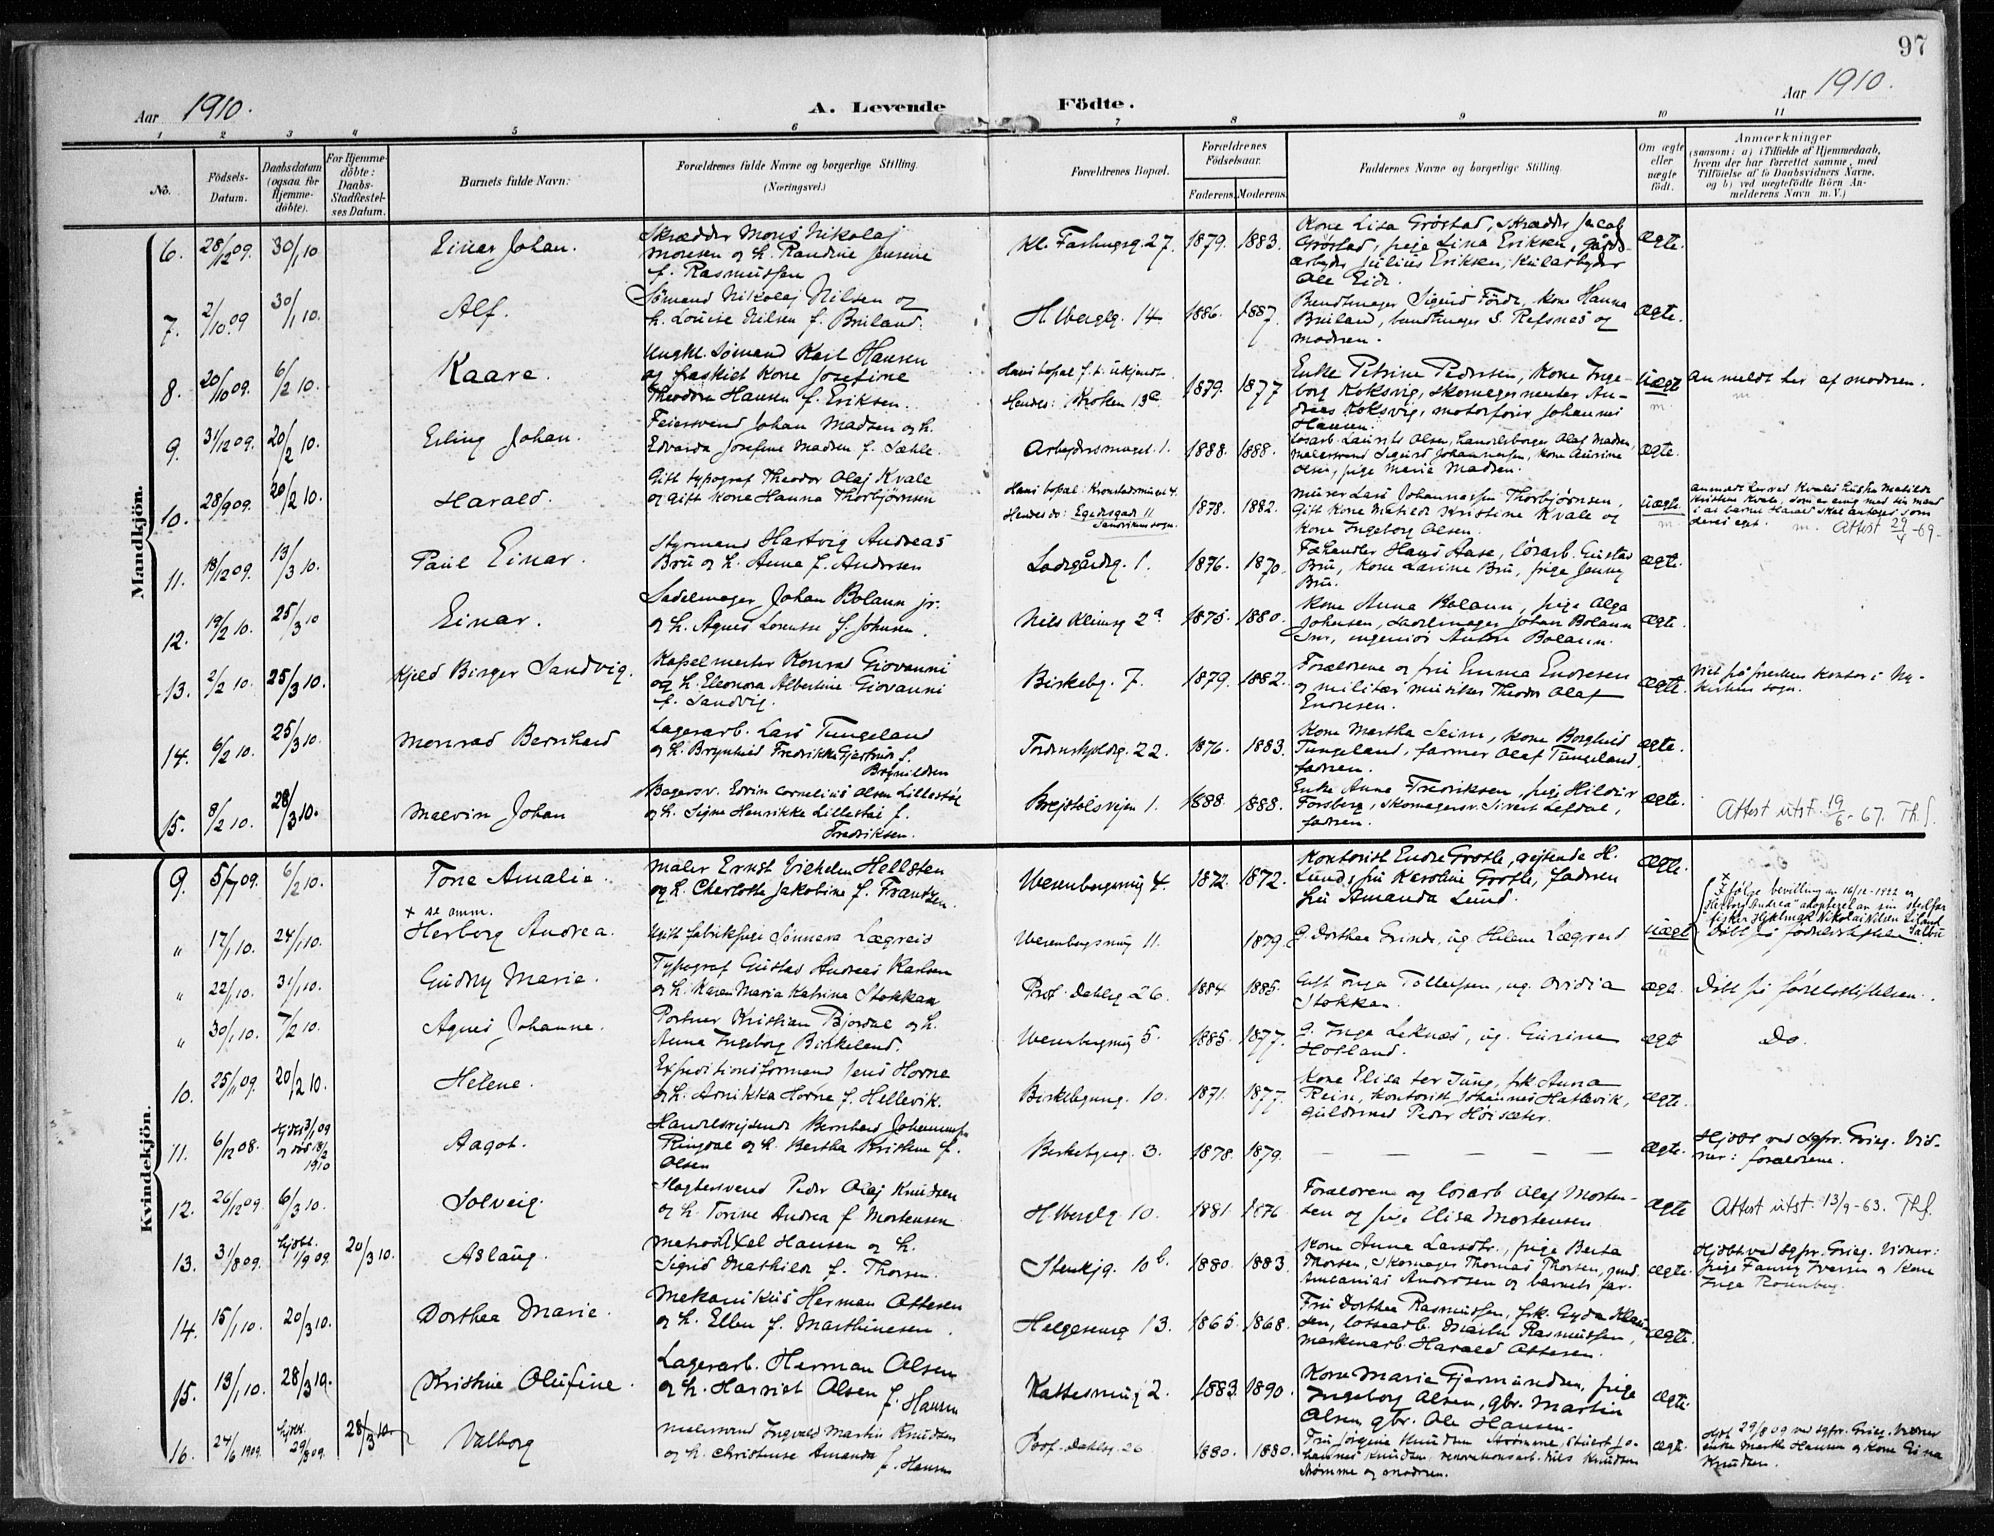 97
Aar 1910.
A. Levende Födte.
Aar 1910.
1 2 3 4 5 6 7 8 9 10 11
No.
Födsels-Datum.
Daabsdatum (ogsaa for Hjemme-döbte).
For Hjemme-döbte: Daabs-Stadfæstel-ses Datum.
Barnets fulde Navn:
Forældrenes fulde Navne og borgerlige Stilling.
(Næringsvei.)
Forældrenes Bopæl.
Forældrenes Födselsaar.
Faderens. Moderens.
Faddernes Navne og borgerlige Stilling.
Om ægte eller uægte födt.
Anmærkninger
(saasom: a) i Tilfælde af Hjemmedaab,
hvem der har forrettet samme, med
Tilföielse af to Daabsvidners Navne,
og b) ved uægtefödte Börn An-
melderens Navn m. V.)
Mandkjön.
6. 28/12 09. 30/1 10 Einar Johan.
Skrædder Mons Nikolaj
Monsen og h. Randine Jensine
f. Rasmussen
27. 1879. 1883.
Kone Lisa Grøstad, skrædder Jacob
Grøstad, pige Lina Eriksen, gårds-
arbeder Julius Eriksen, kularbeder
Ole Eide.
ægte.
7. 2/10 09 30/1 10. Alf.
Sømand Nikolaj Nilsen og
h. Louise Nilsen f. Bruland.
H. Wbergsg. 14. 1886. 1887.
Bundtmager Sigurd Förde, kone Hanna
Bruland, bundtmager S. Refsnes og
modren.
ægte.
8. 20/10 09. 6/2 10. Kaare.
Ungkl. sømand Karl Hansen
og fraskilt kone Josefine
Theodora Hansen f. Eriksen.
Hans bopæl f. t. ukjendt
Hendes: Kroken 13a
1879. 1877
Enke Petrine Pedersen, kone Inge-
borg Koksvig, skomagermester An-
dreas Koksvig, motorfører Johannes
Hansen.
uægt
m.
Anmeldt her af modren.
m
9. 31/12 09. 20/2 10. Erling Johan.
Feiersvend Johan Madsen og h.
Edvarda Josefine Madsen f. Sæhle.
Arbeidersmuget. 1. 1888. 1888.
Losarb. Laurits Olsen, handelsborger Olaf Madsen,
malersvend Sigurd Johannessen, kone Gurine
Olsen, pige Marie Madsen.
ægte.
10. 28/9 09. 20/2 10. Harald.
Gift typograf Theodor Olaj Kvale
og gift kone Hanna Thorbjørnsen
Hans bopæl: Kronstadsmuget 4.
Hendes do: Egedesgade 11
Sandvikens sogn.
1878. 1882.
Murer Lars Johannessen Thorbjørnsen,
Gift kone Matilde Kristine Kvale og
kone Ingeborg Olsen.
uægte.
m
Anmeldt her ved Kvales hustru Matilde
Kristine Kvale, som er enig med sin mand
i at barnet Harald skal antages som
deres eget. m. Attest 29/4 -69.
11. 18/12 09. 13/3 10. Paul Einar.
Styrmand Hartvig Andreas
Bru og h. Anna f. Andersen
Ladegårdsg. 1. 1876. 1870.
Fæhandler Hans Aase, losarb. Gustav
Bru, kone Lavine Bru, pige Jenny
Bru.
ægte.
12. 19/2 10. 25/3 10 Einar.
Sadelmager Johan Bolann jr.
og h. Agnes Lorentse f. Johnsen.
Nils Klimsg 2a 1875. 1880.
Kone Anna Bolann, pige Olga
Johnsen, sadelmager Johan Bolann
Snr, ingeniør Anton Bolann.
ægte.
13. 2/2 10. 25/3 10. Kjeld Birger Sandvig.
Kapelmester Konrad Giovanni
og h. Eleonora Albertine Giovanni
f. Sandvig.
Birkebg. 7. 1879. 1882.
Forældrene og fru Emma Endresen
og militær musiker Theodor Olaf
Endresen.
ægte.
Viet på prestens kontor i Ny-
kirkens sogn.
14. 6/2 10. 25/3 10. Monrad Bernhard
Lagerarb. Lars Tungeland
og h. Brynhild Fredrikke Gjertrud f.
Brynildsen
Tordenskjoldsg. 22. 1876. 1883.
Kone Martha Seim, kone Borghild
Tungeland, farmer Olaf Tungeland,
fadren.
ægte.
15. 8/2 10. 28/3 10. Malvin Johan
Bagersv. Edvin Cornelius Olsen Lillestøl
og h. Signe Henrikke Lillestøl f.
Fredriksen.
Breistølsvejen 1. 1888. 1888.
Enke Anna Fredriksen, pige Hildur
Forsberg, skomagersv. Sivert Lefdal,
fadren.
ægte.
Attest utst. 19/6 - 67. Th. J.
Kvindekjön.
9. 5/7 09. 6/2 10. Tone Amalie.
Maler Ernst Vilhelm Hellsten
og h. Charlotte Jakobine f. Frantzen.
Wesenbergsmug 4. 1872. 1872.
Kontorist Endre Grotle, rejsende H.
Lund, fru Karoline Grotle, fadren
fru Amanda Lund.
ægte.
" 17/1 10. 24/1 10.
x se anm.
Herborg Andrea.
Ugift fabrikpige Sønneva Lægreid
Wesenbergsmug 11. 1879.
G. Dorthea Grinde, ug. Helene Lægreid
uægt
x
Ifølge bevilling av 16/12-1922 er
"Herborg Andrea" adopteret av sin stedfar
fisker Hjelmar Nikolai Nilsen Eiland
Döbt på fødselsstiftelsen.
" 22/1 10. 31/1 10. Gudny Marie.
Typograf Gustav Andreas Karlsen
og h. Karen Maria Katrine Stokkan
Prof. Dahlsg 26. 1884 1885.
Gift Inga Tollefsen, ug. Ovidia
Stokkan.
ægte.
Döbt på fødselsstiftelsen.
" 30/1 10. 7/2 10. Agnes Johanne.
Portner Kristian Bjordal og h.
Anna Ingeborg Birkeland.
Wesenbergsmug 5. 1885. 1877.
G. Inga Leknæs, ug. Gurine
Hofland.
ægt
Do
10. 25/11 09. 20/2 10. Helene.
Expeditionsformand Jens Hovne
og h. Annikka Hovne f. Hellevik.
Birkebgmug. 10. 1871. 1877.
Kone Elisa ter Jung, frk Anna
Rein, kontorist Johannes Hatlevik,
guldsmed Peder Höisæter.
ægte.
11. 6/12 08. Hjdøbt 3/1 09 og 18/2 1910 Aagot.
Handelsrejsende Bernhard Johannessen
Ringdal og h. Bertha Kristine f.
Olsen
Birkebgmg. 3. 1878. 1879.
— — — — —
ægte.
Hjdøbt ved sgpr. Grieg. Vid-
ner: forældrene.
12. 26/12 09 6/3 10. Solveig.
Slagtersvend Peder Olaj Knudsen
og h. Torine Andrea f. Mortensen
H. Wbergsg 10. 1881. 1876
Forældrene og losarb Olaf Morten-
sen og pige Elisa Mortensen.
ægte
Attest utst. 13/9 -63. Th. J.
13. 31/8 09. hjdøbt. 1/9 09. 20/3 10. Aslaug.
Matros Axel Hansen og h.
Sigrid Mathilde f. Thorsen.
Stenkjg. 10b. 1880. 1883.
Kone Anna Larsdtr., pige Berta
Thorsen, skomager Thomas Thorsen,
Ananias Andersen og barnets far.
ægte.
Hjdøbt ved sgpr. Grieg. Vidner:
pige Fanny Iversen og kone
Inga Rosenberg.
14. 15/1 10. 20/3 10. Dorthea Marie.
Mekanikus Herman Ottesen
og h. Ellen f. Marthinesen.
Helgesensg 13. 1865. 1868.
Fru Dorthea Rasmussen, frk. Gyda Han-
sen, lossearb. Martin Rasmussen,
maskinarb. Harald Ottesen.
ægte.
15. 13/1 10. 28/3 10. Kristine Olufine.
Lagerarb. Herman Olsen
og h. Harriet Olsen f. Hansen
Kattesmug 2. 1883. 1890.
Kone Marie Gjermundsen, pige
Ingeborg Olsen, gbr. Martin
Olsen, gbr. Ole Hansen.
ægte.
16. 24/6 1909. hjdøbt. 29/8 09. 28/3 10. Valborg
Murersvend Ingvald Martin Knudsen
og h. Christense Amanda f. Hansen
Prof. Dahlsg. 26 1880. 1880.
Fru Jørgine Knudsen Strømme, stuert Jo-
hannes Knudsen, renovationsarb. Nils Knudsen
Strømme og modren.
ægte.
Hjdt 29/8 09 ved sgpr. Grieg. Vidner
enke Marthe Hansen og kone Gina
Knudsen.